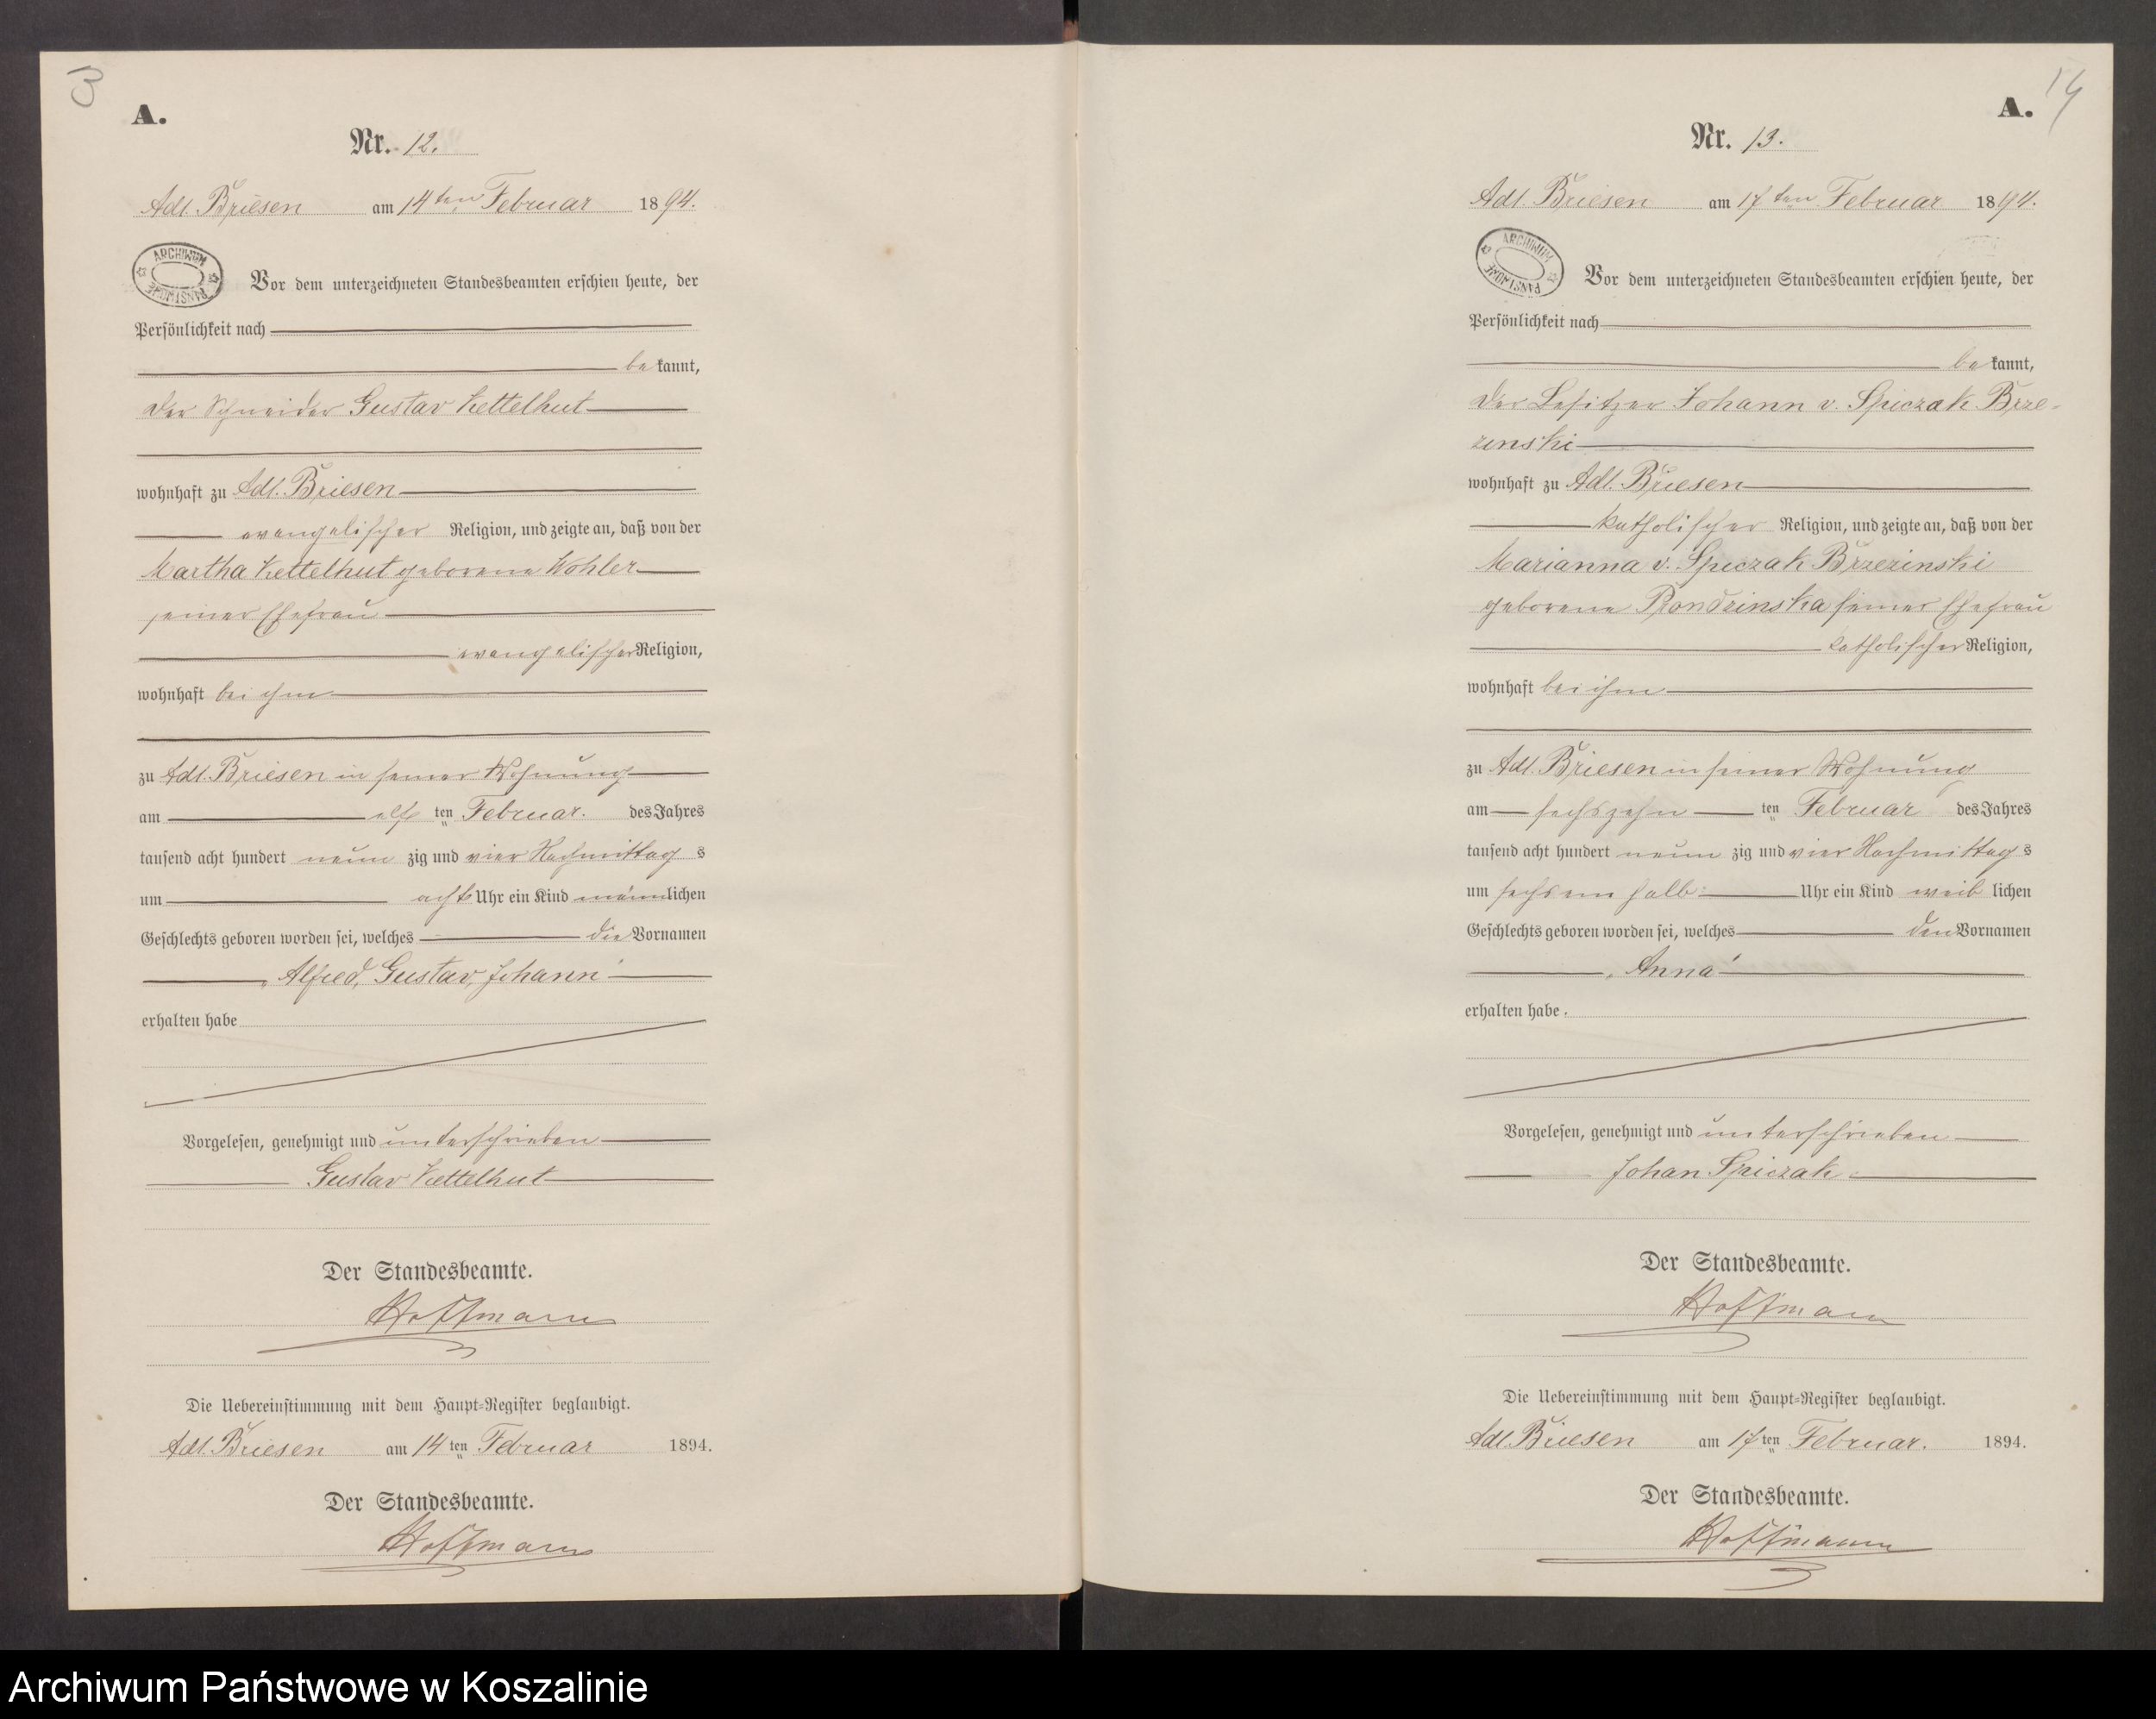 3
A.
Nr. 12.
Adl. Briesen am 14ten Februar 1894.
ARCHIWUM PAŃSTWOWE
Vor dem unterzeichneten Standesbeamten erschien heute, der
Persönlichkeit nach
bekannt,
der Schneider Gustav Kettelhut
wohnhaft zu Adl. Briesen
evangelischer Religion, und zeigte an, daß von der
Martha Kettelhut geborene Wohler
seiner Ehefrau
evangelischer Religion,
wohnhaft bei ihm
zu Adl. Briesen in seiner Wohnung
am elf ten Februar. des Jahres
tausend acht hundert neun zig und vier Nachmittag s
um acht Uhr ein Kind männlichen
Geschlechts geboren worden sei, welches die Vornamen
„Alfred, Gustav, Johann“
erhalten habe
Vorgelesen, genehmigt und unterschrieben
Gustav Kettelhut
Der Standesbeamte.
Hoffmann
Die Uebereinstimmung mit dem Haupt-Register beglaubigt.
Adl. Briesen am 14ten Februar 1894.
Der Standesbeamte.
Hoffmann
14
A.
Nr. 13.
Adl. Briesen am 17ten Februar 1894.
ARCHIWUM PAŃSTWOWE
Vor dem unterzeichneten Standesbeamten erschien heute, der
Persönlichkeit nach
bekannt,
der Besitzer Johann v. Spiczak Brze-
zinski
wohnhaft zu Adl. Briesen
katholischer Religion, und zeigte an, daß von der
Marianna v. Spiczak Brzezinski
geborene Prondzinska seiner Ehefrau
katholischer Religion,
wohnhaft bei ihm
zu Adl. Briesen in seiner Wohnung
am sechszehn ten Februar des Jahres
tausend acht hundert neun zig und vier Nachmittag s
um sechs ein halb Uhr ein Kind weib lichen
Geschlechts geboren worden sei, welches den Vornamen
„Anna“
erhalten habe.
Vorgelesen, genehmigt und unterschrieben
Johan Spiczak
Der Standesbeamte.
Hoffmann
Die Uebereinstimmung mit dem Haupt-Register beglaubigt.
Adl. Briesen am 17ten Februar. 1894.
Der Standesbeamte.
Hoffmann
Archiwum Państwowe w Koszalinie